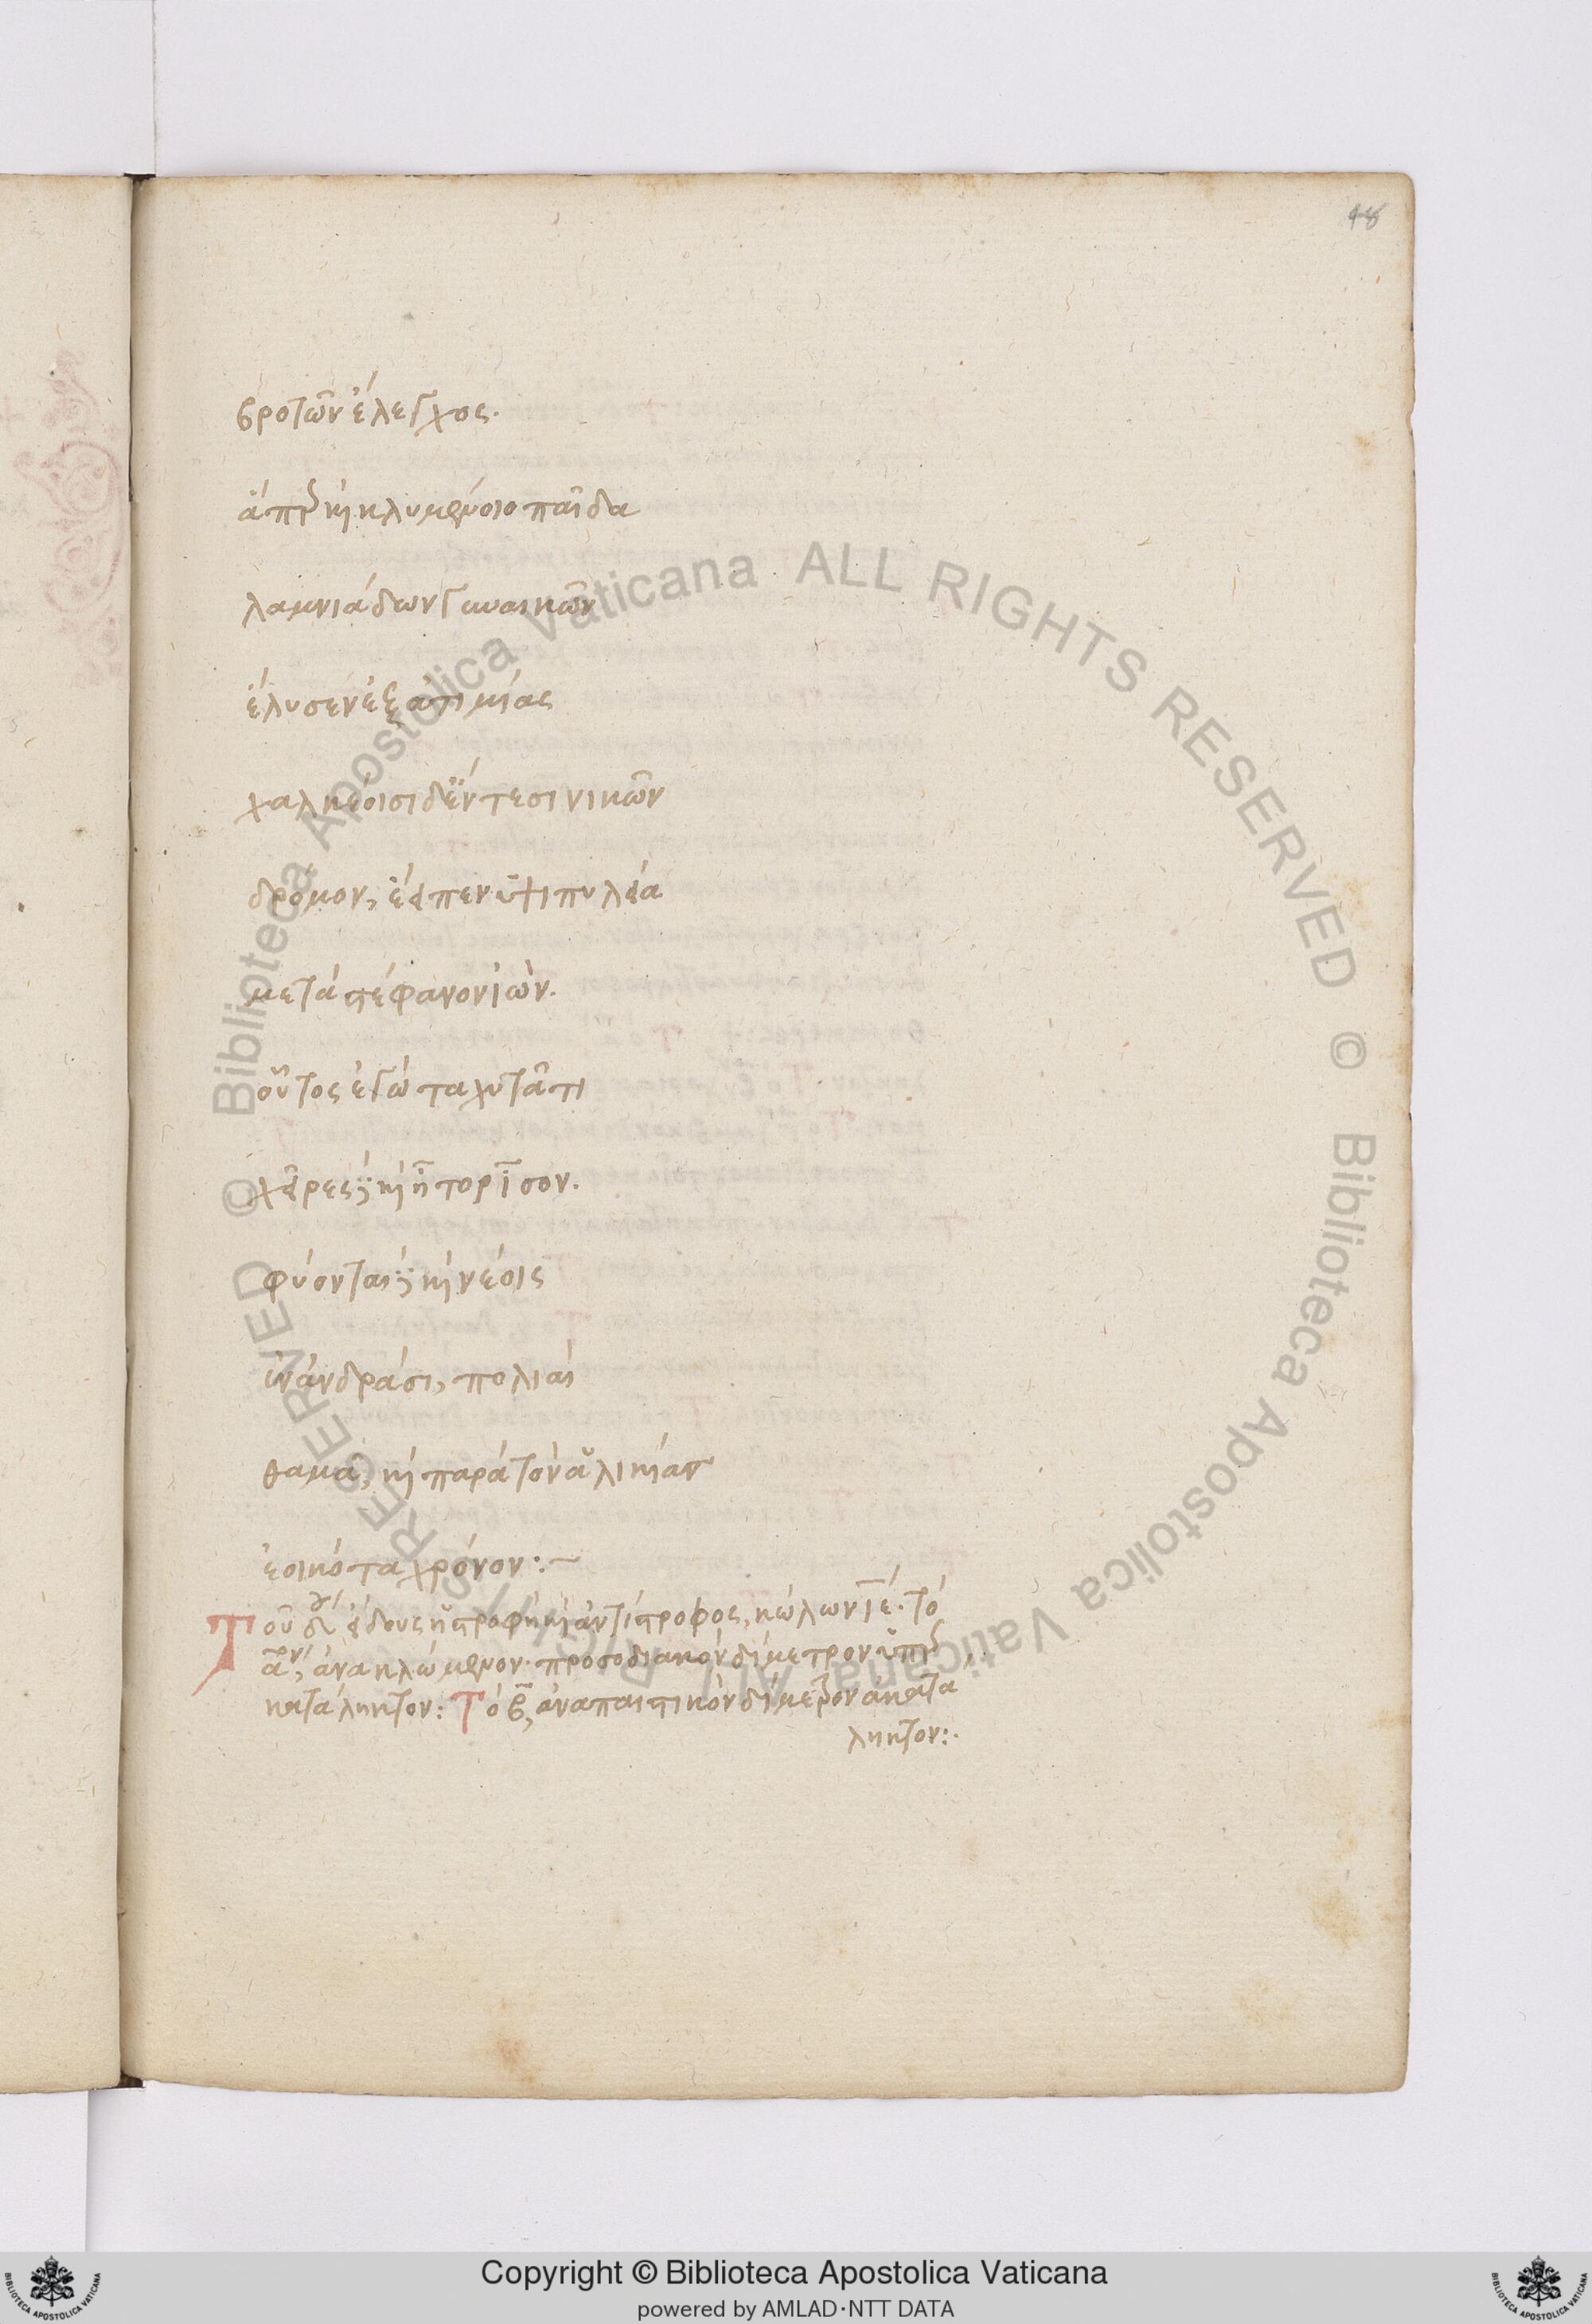 48
βροτῶν ἔλεγχος.
ἅπερ καὶ κλυμένοιο παῖδα
λαμνιάδων γυναικῶν
ἔλυσεν ἐξ ἀτιμίας
χαλκέοισι δ' ἔντεσι νικῶν
δρόμον, ἔειπεν ὑψιπυλεία
μετὰ στέφανον ἰών.
οὗτος ἐγὼ ταχυτᾶτι
χεῖρες δὲ καὶ ἦτορ ἶσον.
φύονται δὲ καὶ νέοις
ἐν ἀνδράσι, πολιαὶ
θαμὰ, καὶ παρὰ τὸν ἁλικίας
ἐοικότα χρόνον:~
Τοῦ δ εἴδους ἡ στροφὴ καὶ ἀντίστροφος, κώλων ιε. τὸ
α, ἀνακλώμενον. προσοδιακὸν δίμετρον ὑπερ
κατάληκτον: Τὸ β, ἀναπαιστικὸν δίμετρον ἀκατα
ληκτον:.
© Biblioteca Apostolica Vaticana ALL RIGHTS RESERVED © Biblioteca Apostolica Vaticana ALL RIGHTS RESERVED
Copyright © Biblioteca Apostolica Vaticana
powered by AMLAD·NTT DATA
BIBLIOTECA APOSTOLICA VATICANA
BIBLIOTECA APOSTOLICA VATICANA